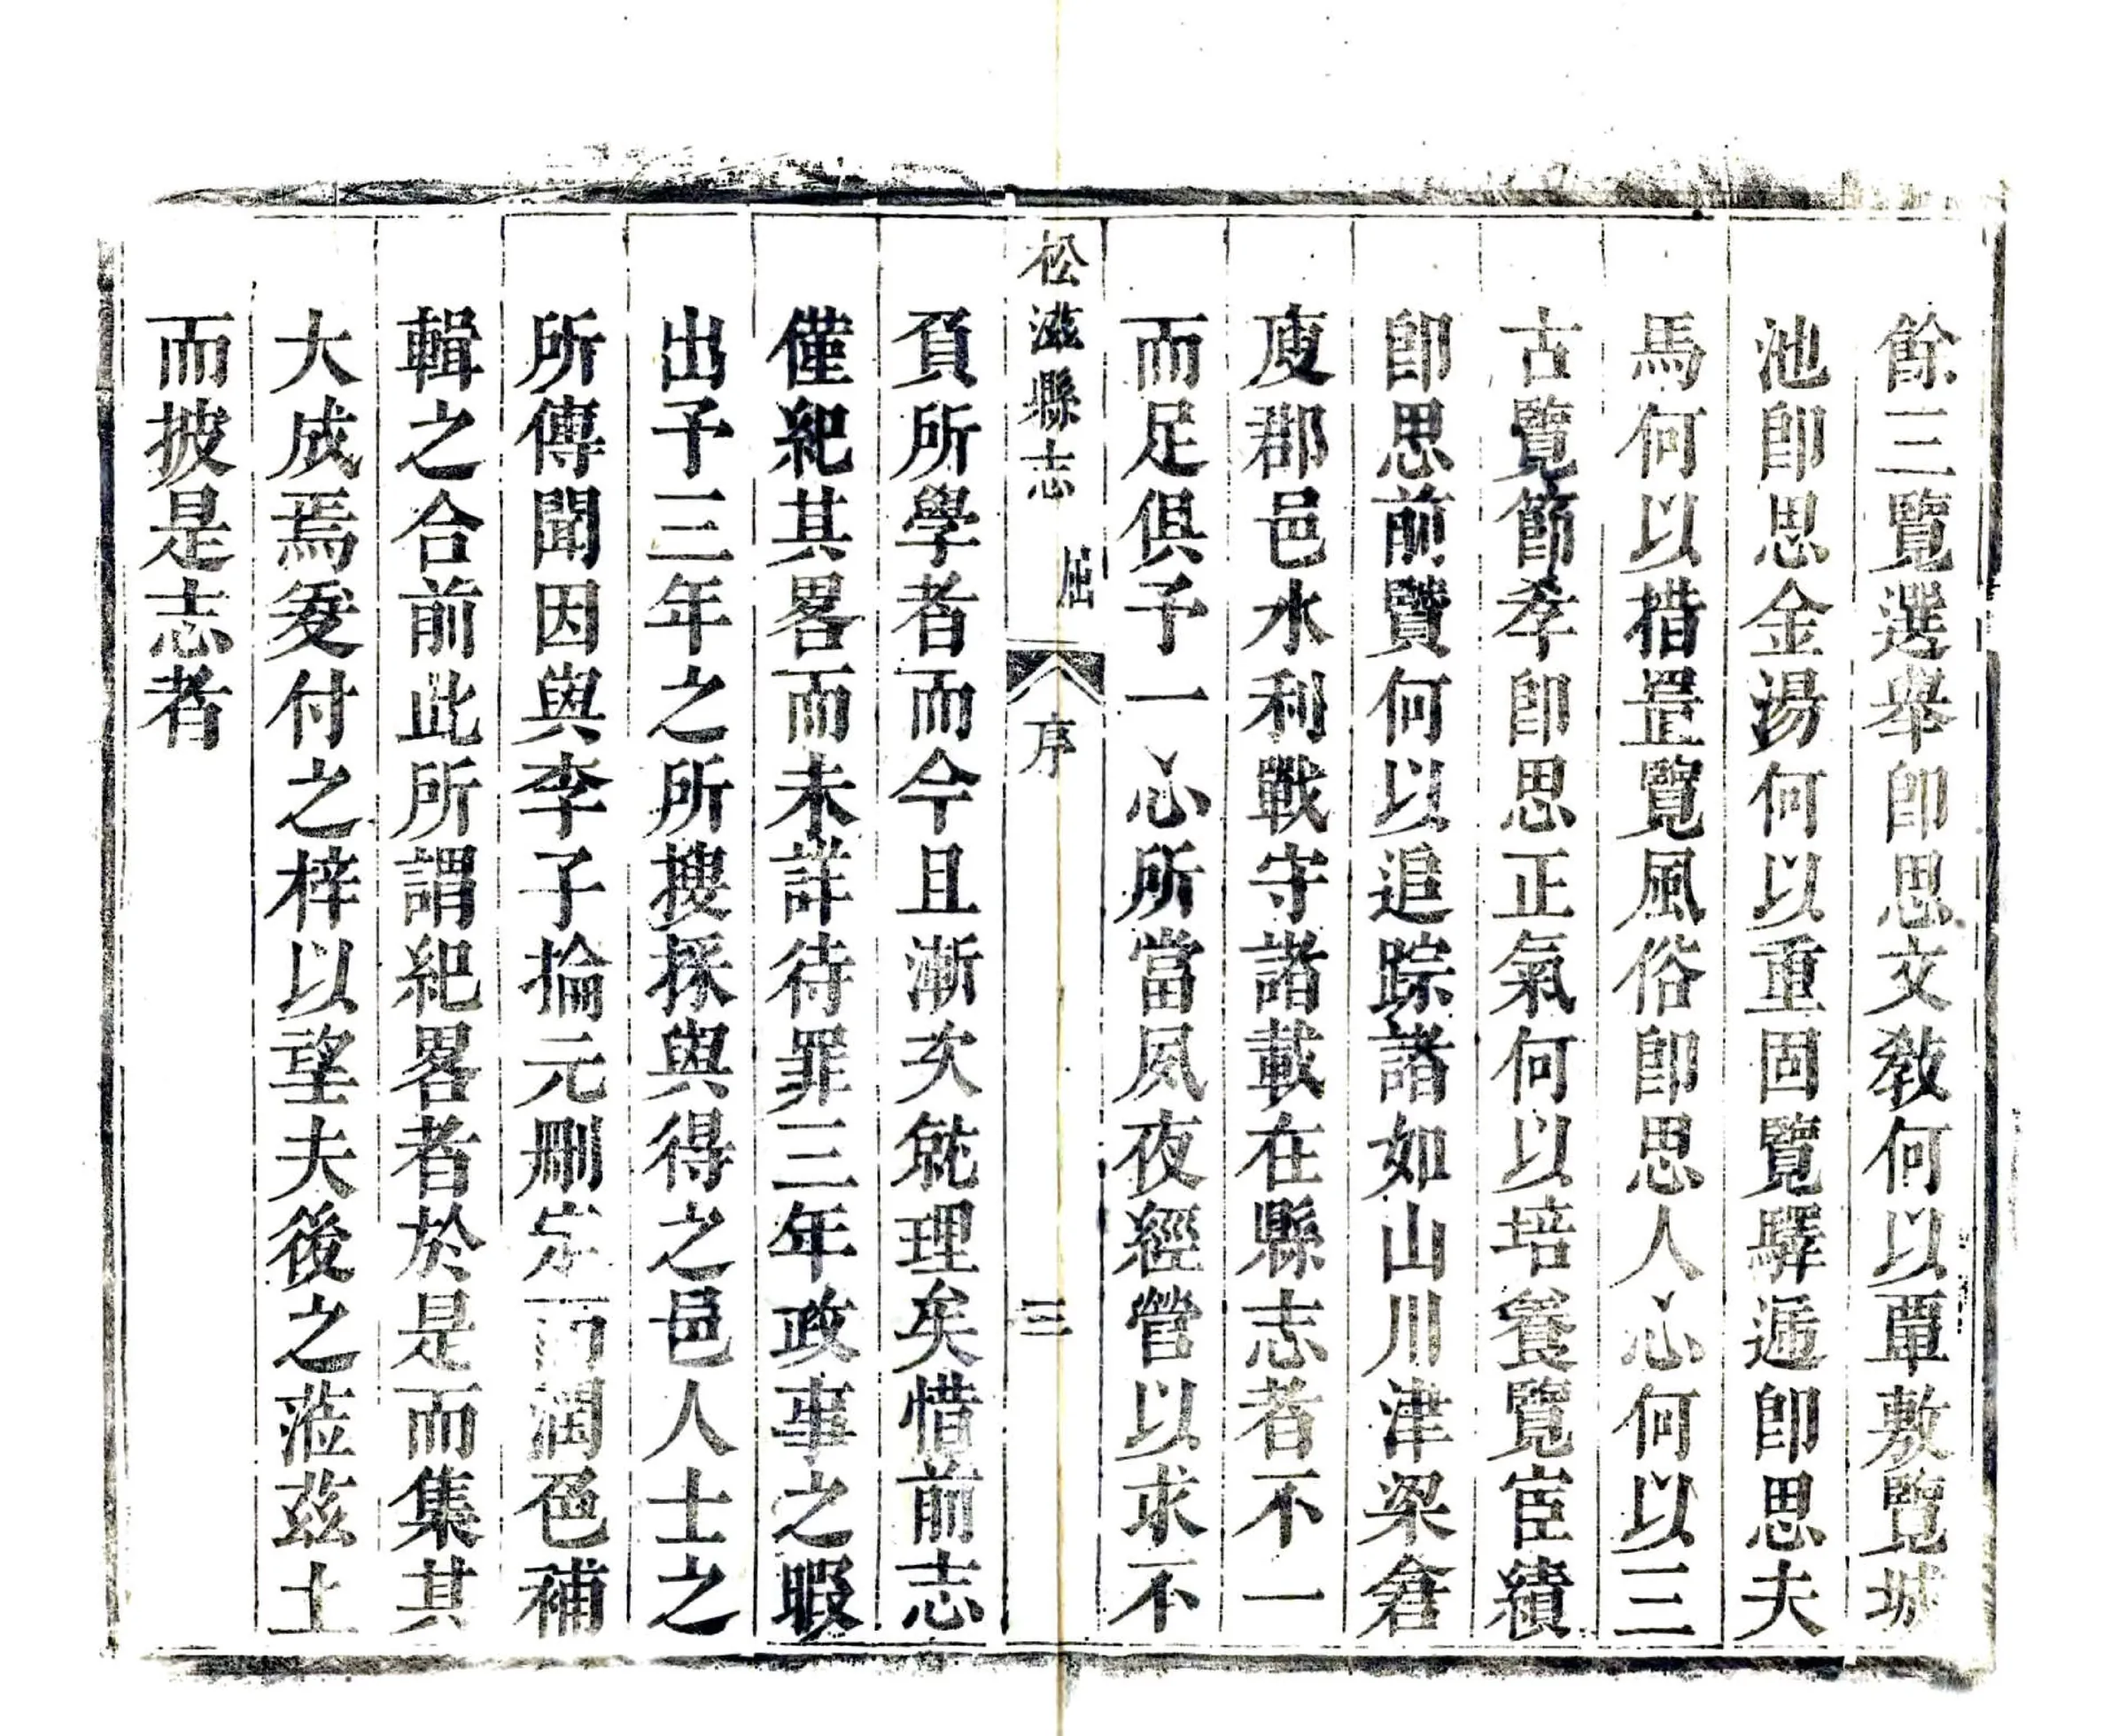 餘三覽選舉卽思文敎何以覃敷覽城
池卽思金湯何以重固覽驛遞卽思夫
馬何以措置覽風俗卽思人心何以三
古覽節孝卽思正氣何以培養覽宦績
卽思前贊何以追踪諸如山川津梁倉
庾郡邑水利戰守諸載在縣志者不一
而足俱予一心所當夙夜經營以求不
松滋縣志 序 三
負所學者而今且漸次就理矣惜前志
僅紀其畧而未詳待罪三年政事之暇
出予三年之所搜採與得之邑人士之
所傳聞因與李子掄元刪定而潤色補
輯之合前此所謂紀畧者於是而集其
大成焉爰付之梓以望夫後之蒞茲土
而披是志者